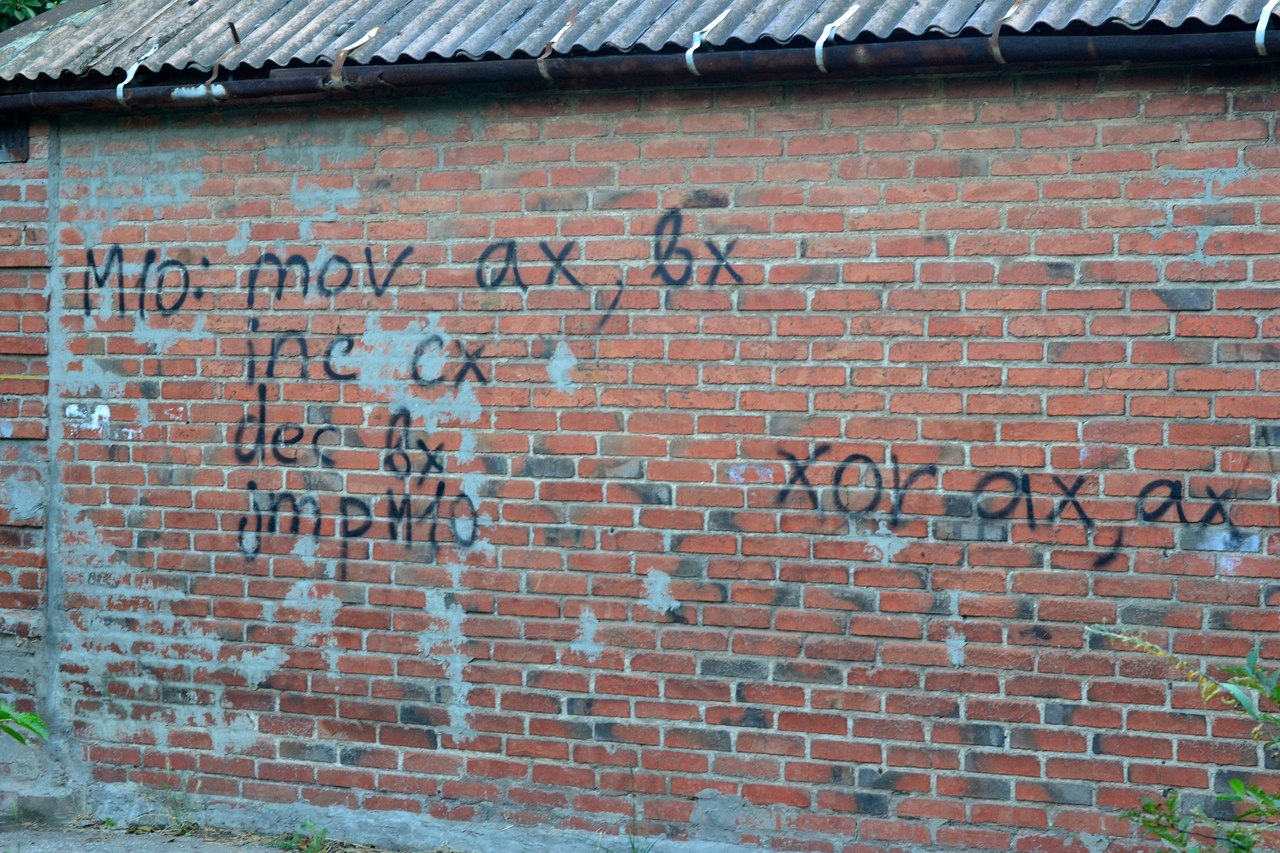 M10: mov ax, bx
inc cx
dec bx
jmp M10
xor ax, ax